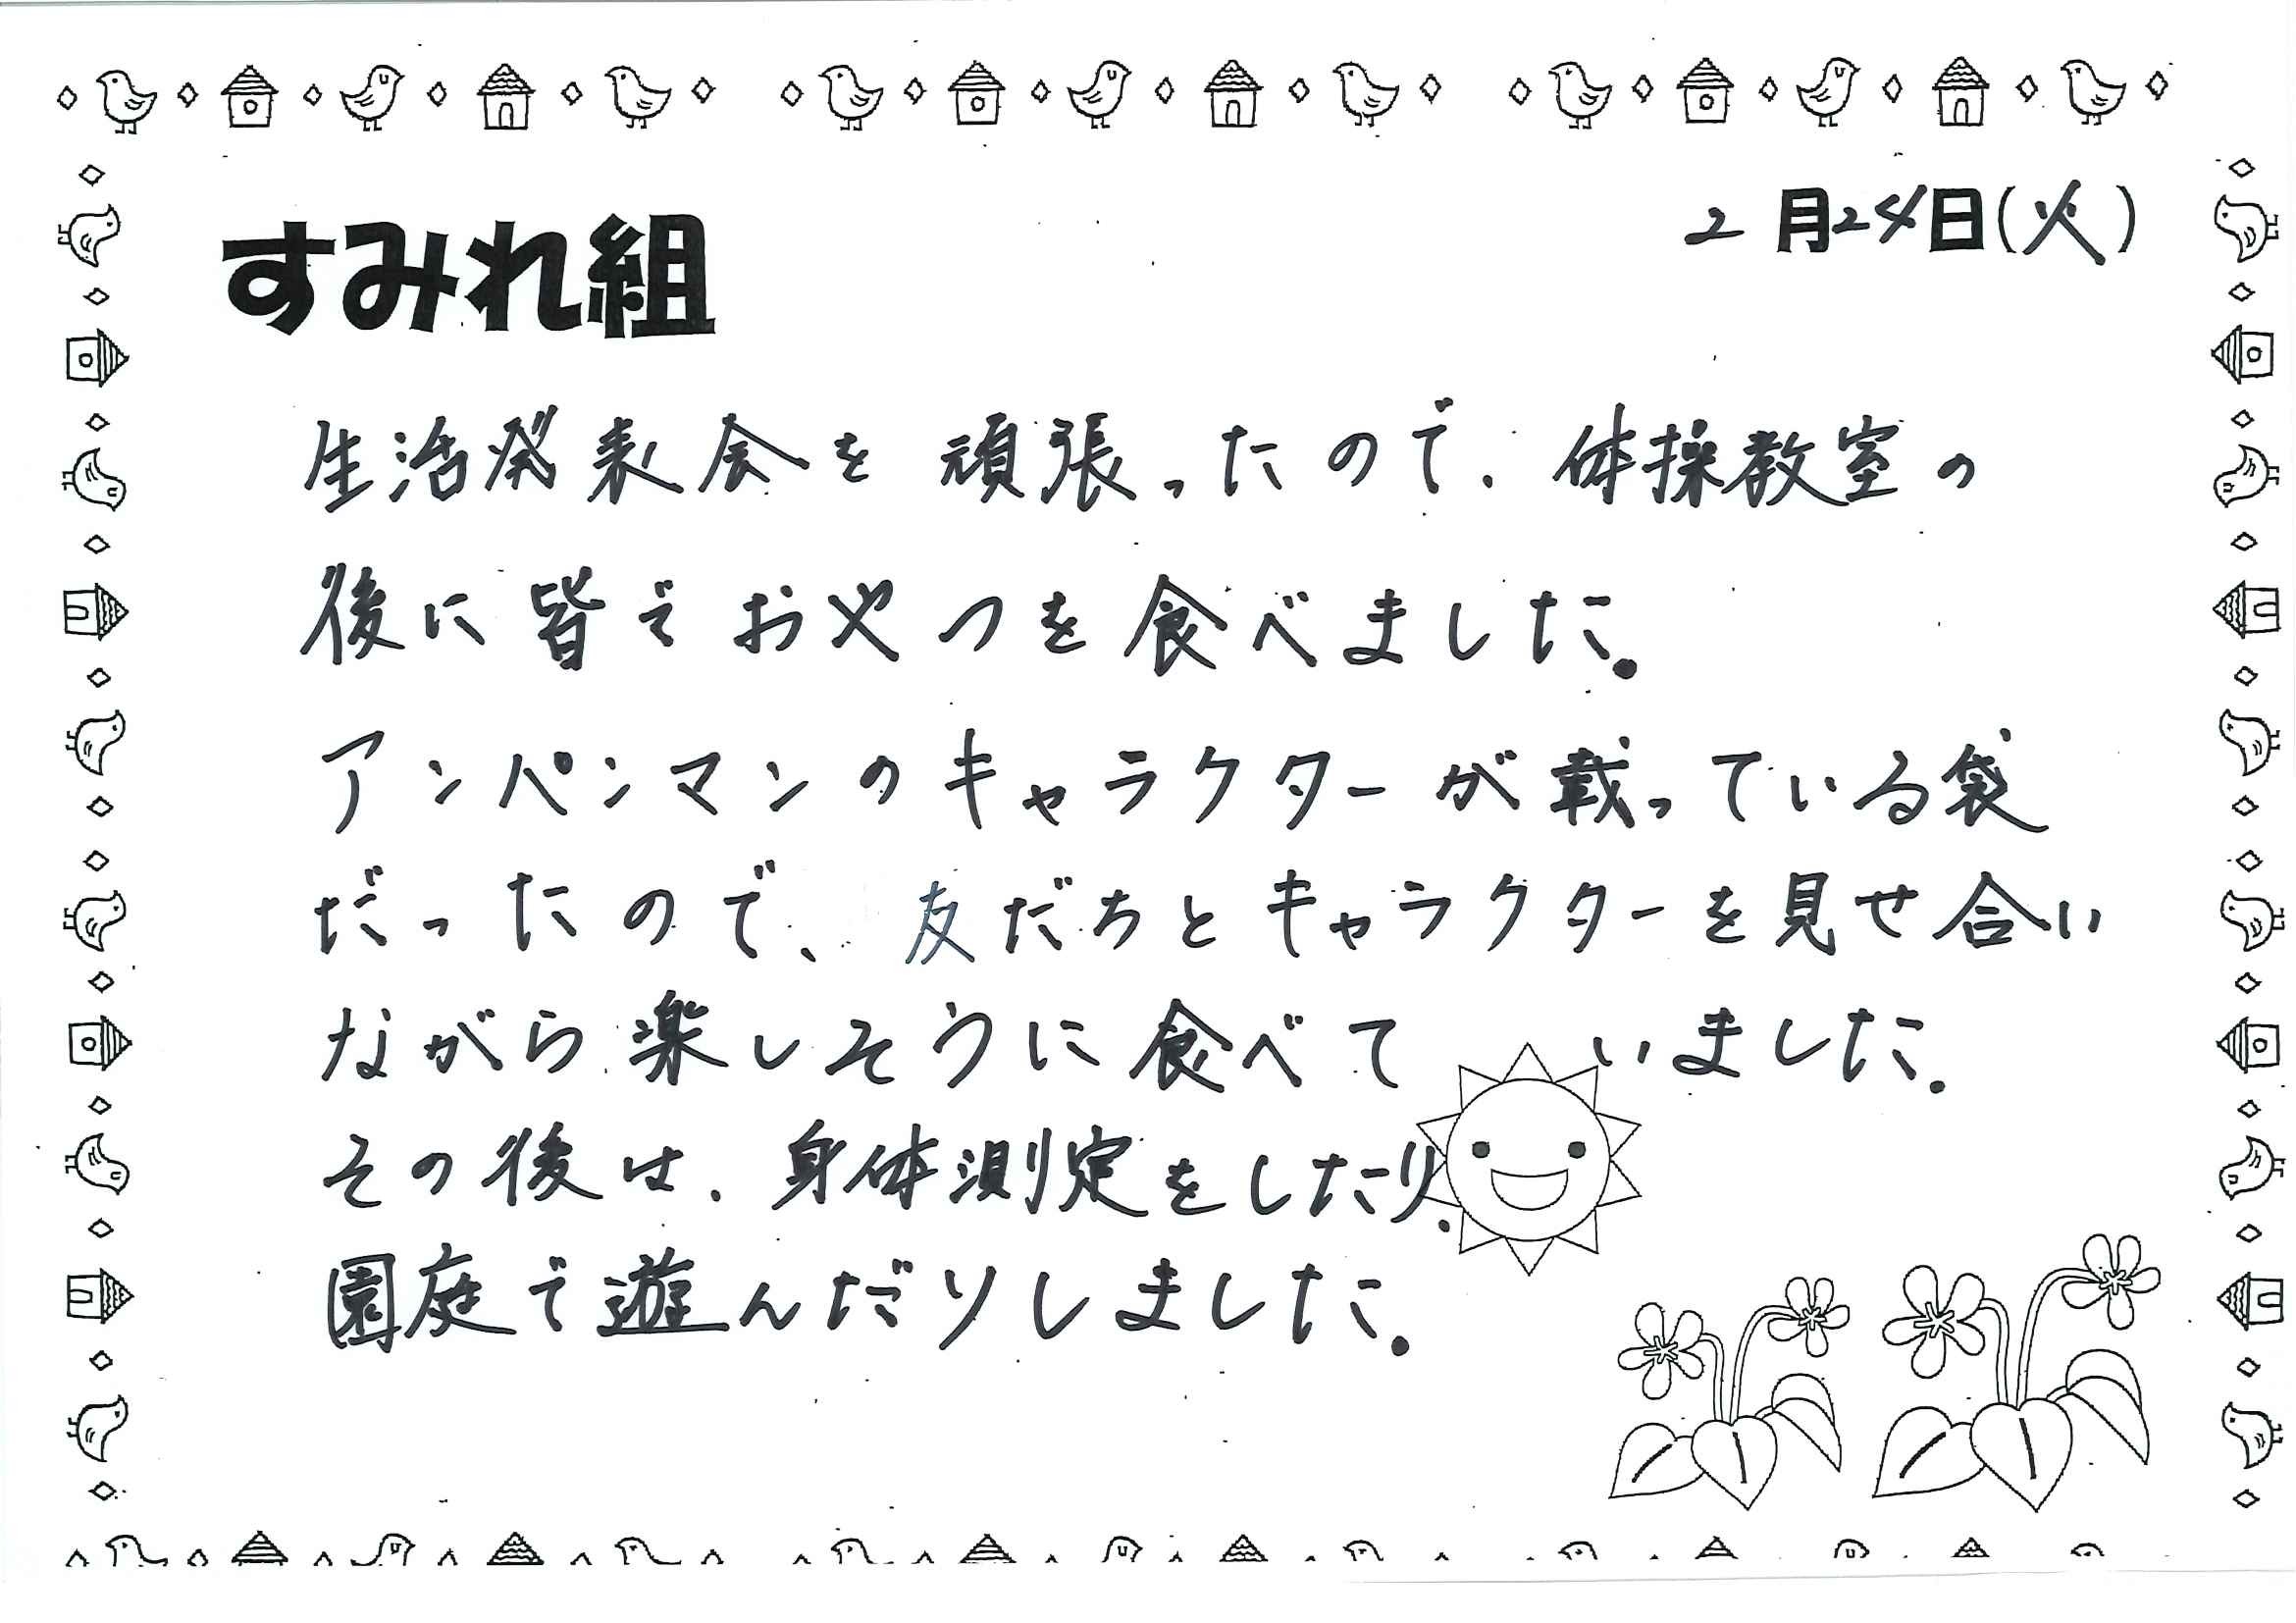 2月24日(火)
すみれ組
生活発表会を頑張ったので、体操教室の
後に皆でおやつを食べました。
アンパンマンのキャラクターが載っている袋
だったので、友だちとキャラクターを見せ合い
ながら楽しそうに食べていました。
その後は、身体測定をしたり、
園庭で遊んだりしました。